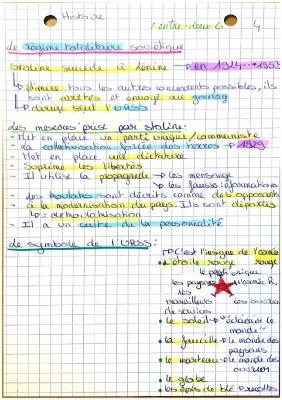 Histoire
L'entre-deux G 4
Le régime totalitaire soviétique
Staline succède à Lénine → en 1924...1953
→ élimine tous les autres concurrents possibles, ils
sont arrêtés et envoyé au goulag
→ dirige seul l'URSS
Les mesures prise par staline:
- Met en place un parti unique/communiste
- La collectivisation forcée des terres → 1929
- Met en place une dictature
- Supprime les libertés
- Il utilise la propagande → les mensonge
→ les fausses informations
- Les koulaks sont décrits comme des opposants
à la modernisation du pays. Ils sont déportés
↳: dékoulakisation
- Il a un culte de la personnalité
Le symbole de l'URSS:
→ C'est l'insigne de l'armée
• L'étoile rouge rouge
les paysans l'armée R.
les
travailleurs les ouvriers
de services
• le soleil → "éclairer le
monde"
• la faucille → le monde des
paysans
• le marteau → le monde des
ouvriers
• le globe
• les épis de blé →